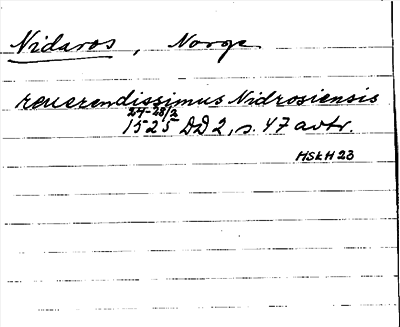 Nidaros, Norge
reuerendissimus Nidrosiensis
24-28/2
1525 DD 2, s. 47 avtr.
HSkH 23